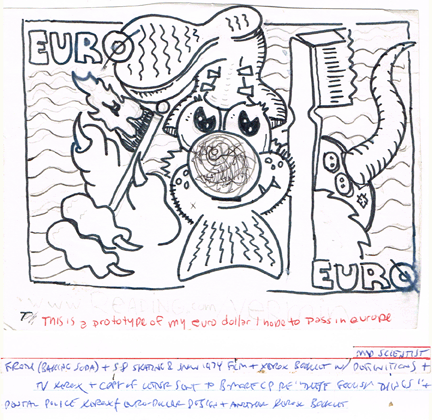 EURO
EURO
THIS IS a prototype of my euro dollar I hope to pass in europe
MAD SCIENTIST
FROM (BAKING SODA) + S8 SKATING & 1974 FILM + XEROX BOOKLET W/ DEFINITIONS +
TV XEROX + COPY OF LETTER SENT TO RE "THESE FOOLISH THINGS" +
POSTAL POLICE XEROX OF EURO-DOLLAR DESIGN + ANOTHER XEROX BOOKLET